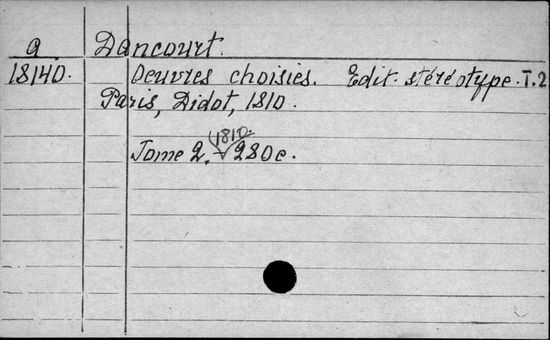 a Dancourt.
18140. Oeuvres choisies. Edit. stéréotype. T. 2
Paris, Didot, 1810.
1810.
Tome 2. 280 c.